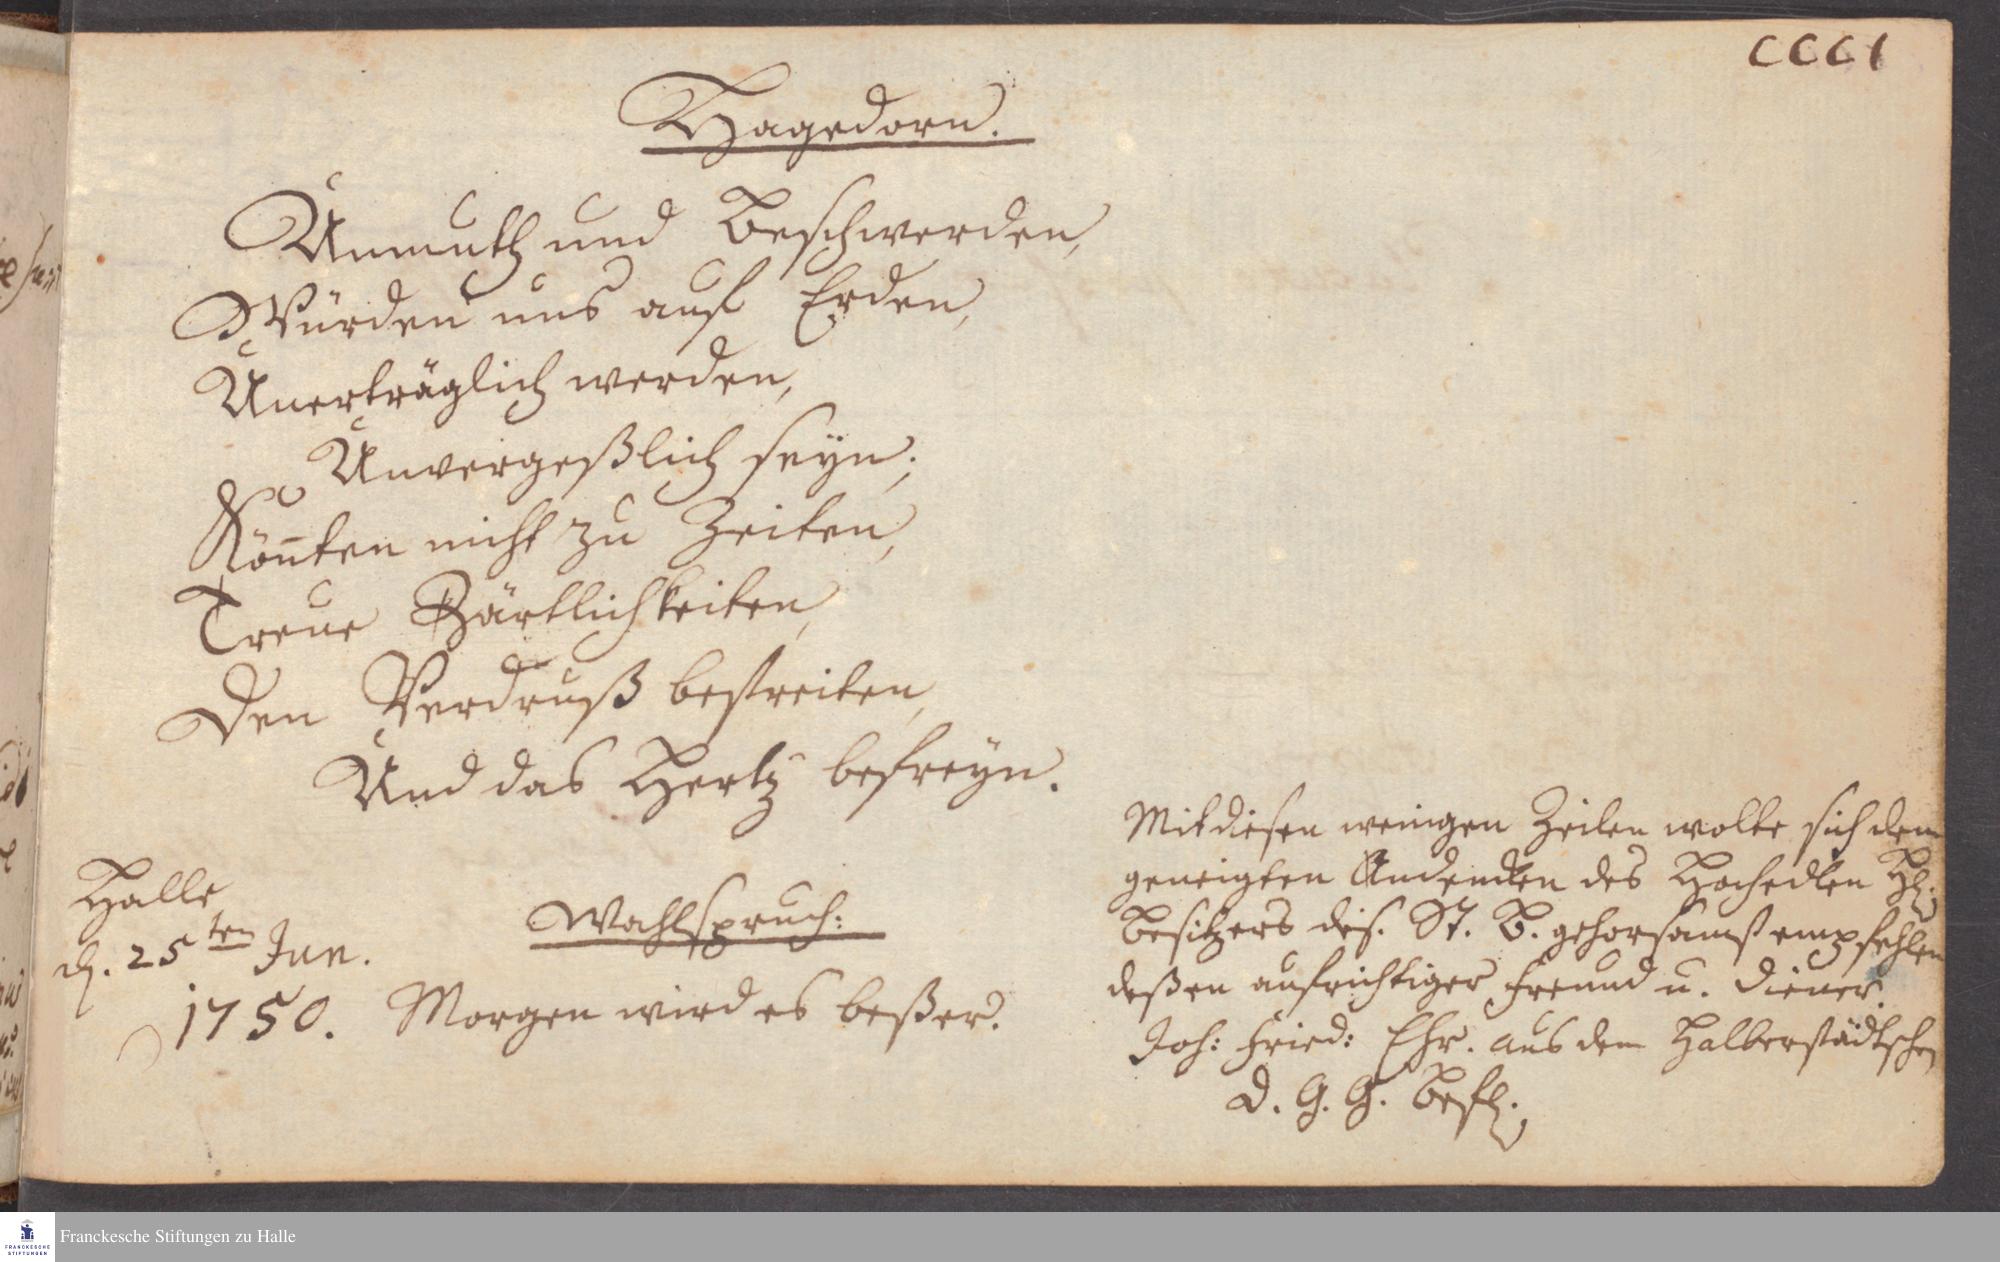 CCCI
Hagedorn.
Unmuth und Beschwerden,
Würden uns auf Erden,
Unerträglich werden,
Unvergeßlich seyn;
Kön̄ten nicht zu Zeiten,
Treue Zärtlichkeiten,
Den Verdruß bestreiten,
Und das Hertz befreyn.
Halle
d. 25ten Jun.
1750.
Wahlspruch:
Morgen wird es beßer.
Mit diesen wenigen Zeilen wolte sich dem
geneigten Andencken des Hochedlen H.
Besitzers dies. St. B. gehorsamst empfehlen
deßen aufrichtiger Freund u. Diener.
Joh: Fried: Ehr. aus dem Halberstädtschen
D. G. G. Befl.
Franckesche Stiftungen zu Halle
FRANCKESCHE
STIFTUNGEN